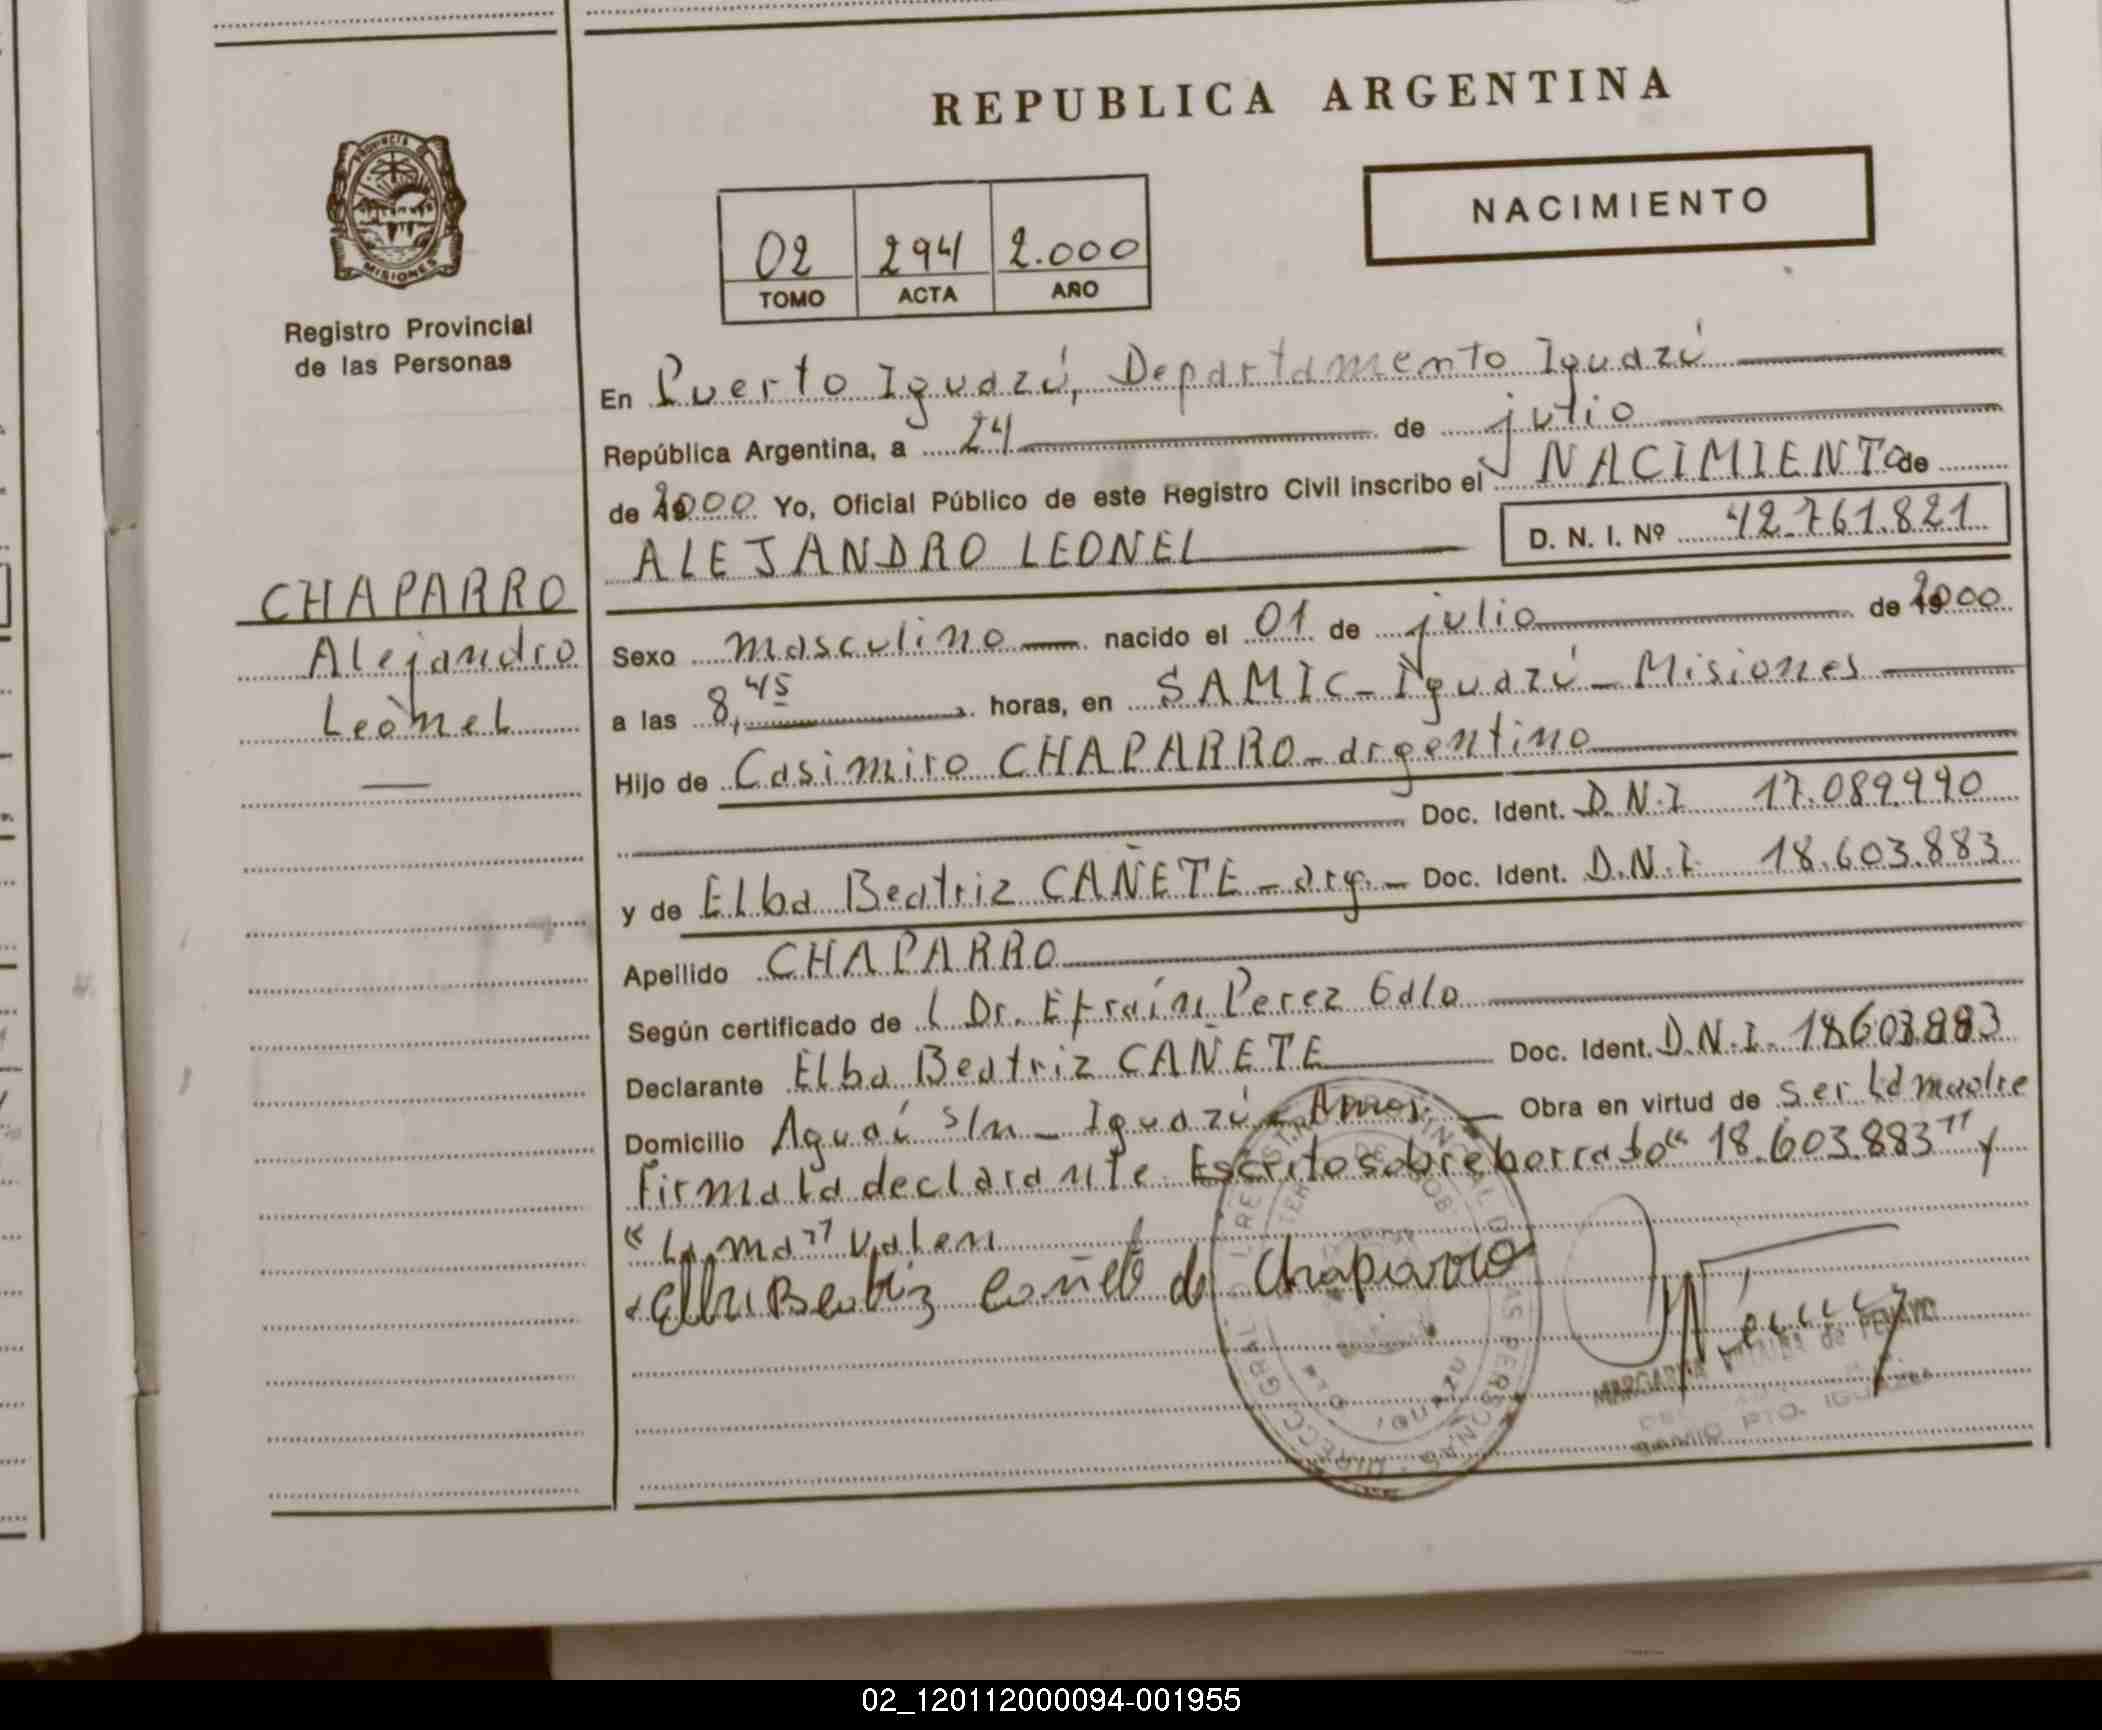 REPUBLICA ARGENTINA
PROVINCIA DE
MISIONES
Registro Provincial
de las Personas
NACIMIENTO
02 294 2.000
TOMO ACTA AÑO
En Puerto Iguazú, Departamento Iguazú
República Argentina, a 24 de julio
de 2000 Yo, Oficial Público de este Registro Civil inscribo el NACIMIENTO de
ALEJANDRO LEONEL D. N. I. Nº 42.761.821
CHAPARRO
Alejandro
Leonel
Sexo masculino nacido el 01 de julio de 2000
a las 8,45 horas, en SAMIC - Iguazú - Misiones
Hijo de Casimiro CHAPARRO - argentino
Doc. Ident. D.N.I 17.089.990
y de Elba Beatriz CAÑETE - arg. - Doc. Ident. D.N.I. 18.603.883
Apellido CHAPARRO
Según certificado de l Dr. Efraín Perez Galo
Declarante Elba Beatriz CAÑETE Doc. Ident. D.N.I. 18.603.883
Domicilio Aguaí s/n - Iguazú - Mnes. Obra en virtud de ser la madre
Firma la declarante. Escrito sobre borrado "18.603.883" y
"la ma" valen
Elba Beatriz Cañete de Chaparro
PTO. IGUAZU
02_120112000094-001955